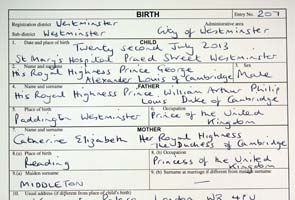 BIRTH Entry No. 207
Registration district Westminster Administrative area
Sub-district Westminster City of Westminster
1. Date and place of birth CHILD
Twenty second July 2013
St Mary's Hospital Praed Street Westminster
2. Name and surname 3. Sex
His Royal Highness Prince George
Alexander Louis of Cambridge Male
4. Name and surname FATHER
His Royal Highness Prince William Arthur Philip
Louis Duke of Cambridge
5. Place of birth 6. Occupation
Paddington Westminster Prince of the United
Kingdom
7. Name and surname MOTHER
Catherine Elizabeth Her Royal Highness
The Duchess of Cambridge
8. Place of birth 8.(b) Occupation
Reading Princess of the United
Kingdom
9.(a) Maiden surname 9.(b) Surname at marriage if different from maiden surname
MIDDLETON —
10. Usual address (if different from place of child's birth)
London W8 4PU